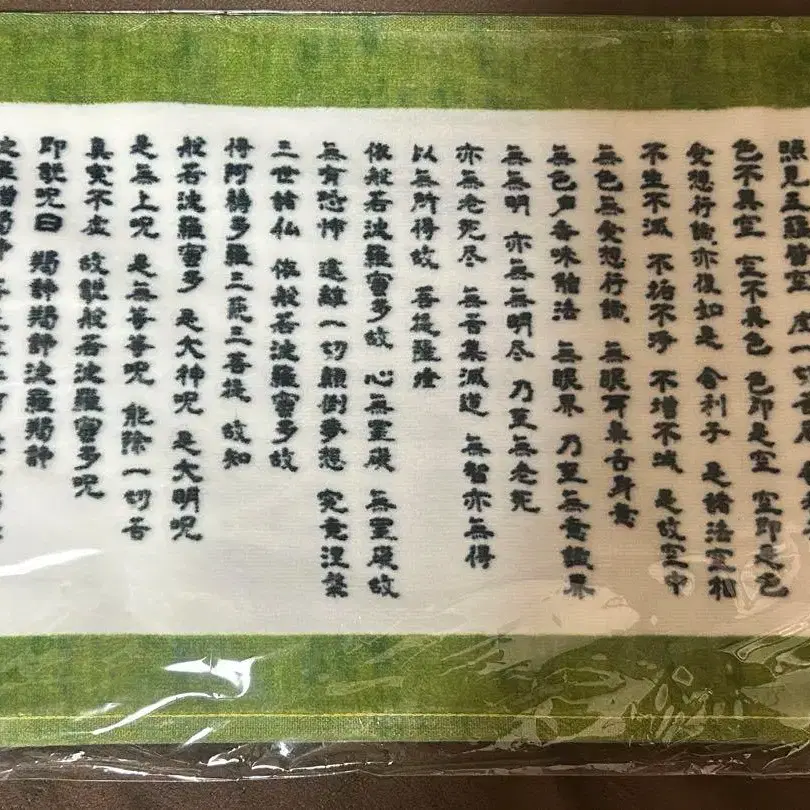 照見五蘊皆空 度一切苦厄
色不異空 空不異色 色即是空 空即是色
受想行識 亦復如是 舎利子 是諸法空相
不生不滅 不垢不浄 不増不減 是故空中
無色無受想行識 無眼耳鼻舌身意
無色声香味触法 無眼界 乃至無意識界
無無明 亦無無明尽 乃至無老死
亦無老死尽 無苦集滅道 無智亦無得
以無所得故 菩提薩埵
依般若波羅蜜多故 心無罣礙 無罣礙故
無有恐怖 遠離一切顛倒夢想 究竟涅槃
三世諸仏 依般若波羅蜜多故
得阿耨多羅三藐三菩提 故知
般若波羅蜜多 是大神呪 是大明呪
是無上呪 是無等等呪 能除一切苦
真実不虚 故説般若波羅蜜多呪
即説呪曰 羯諦羯諦波羅羯諦